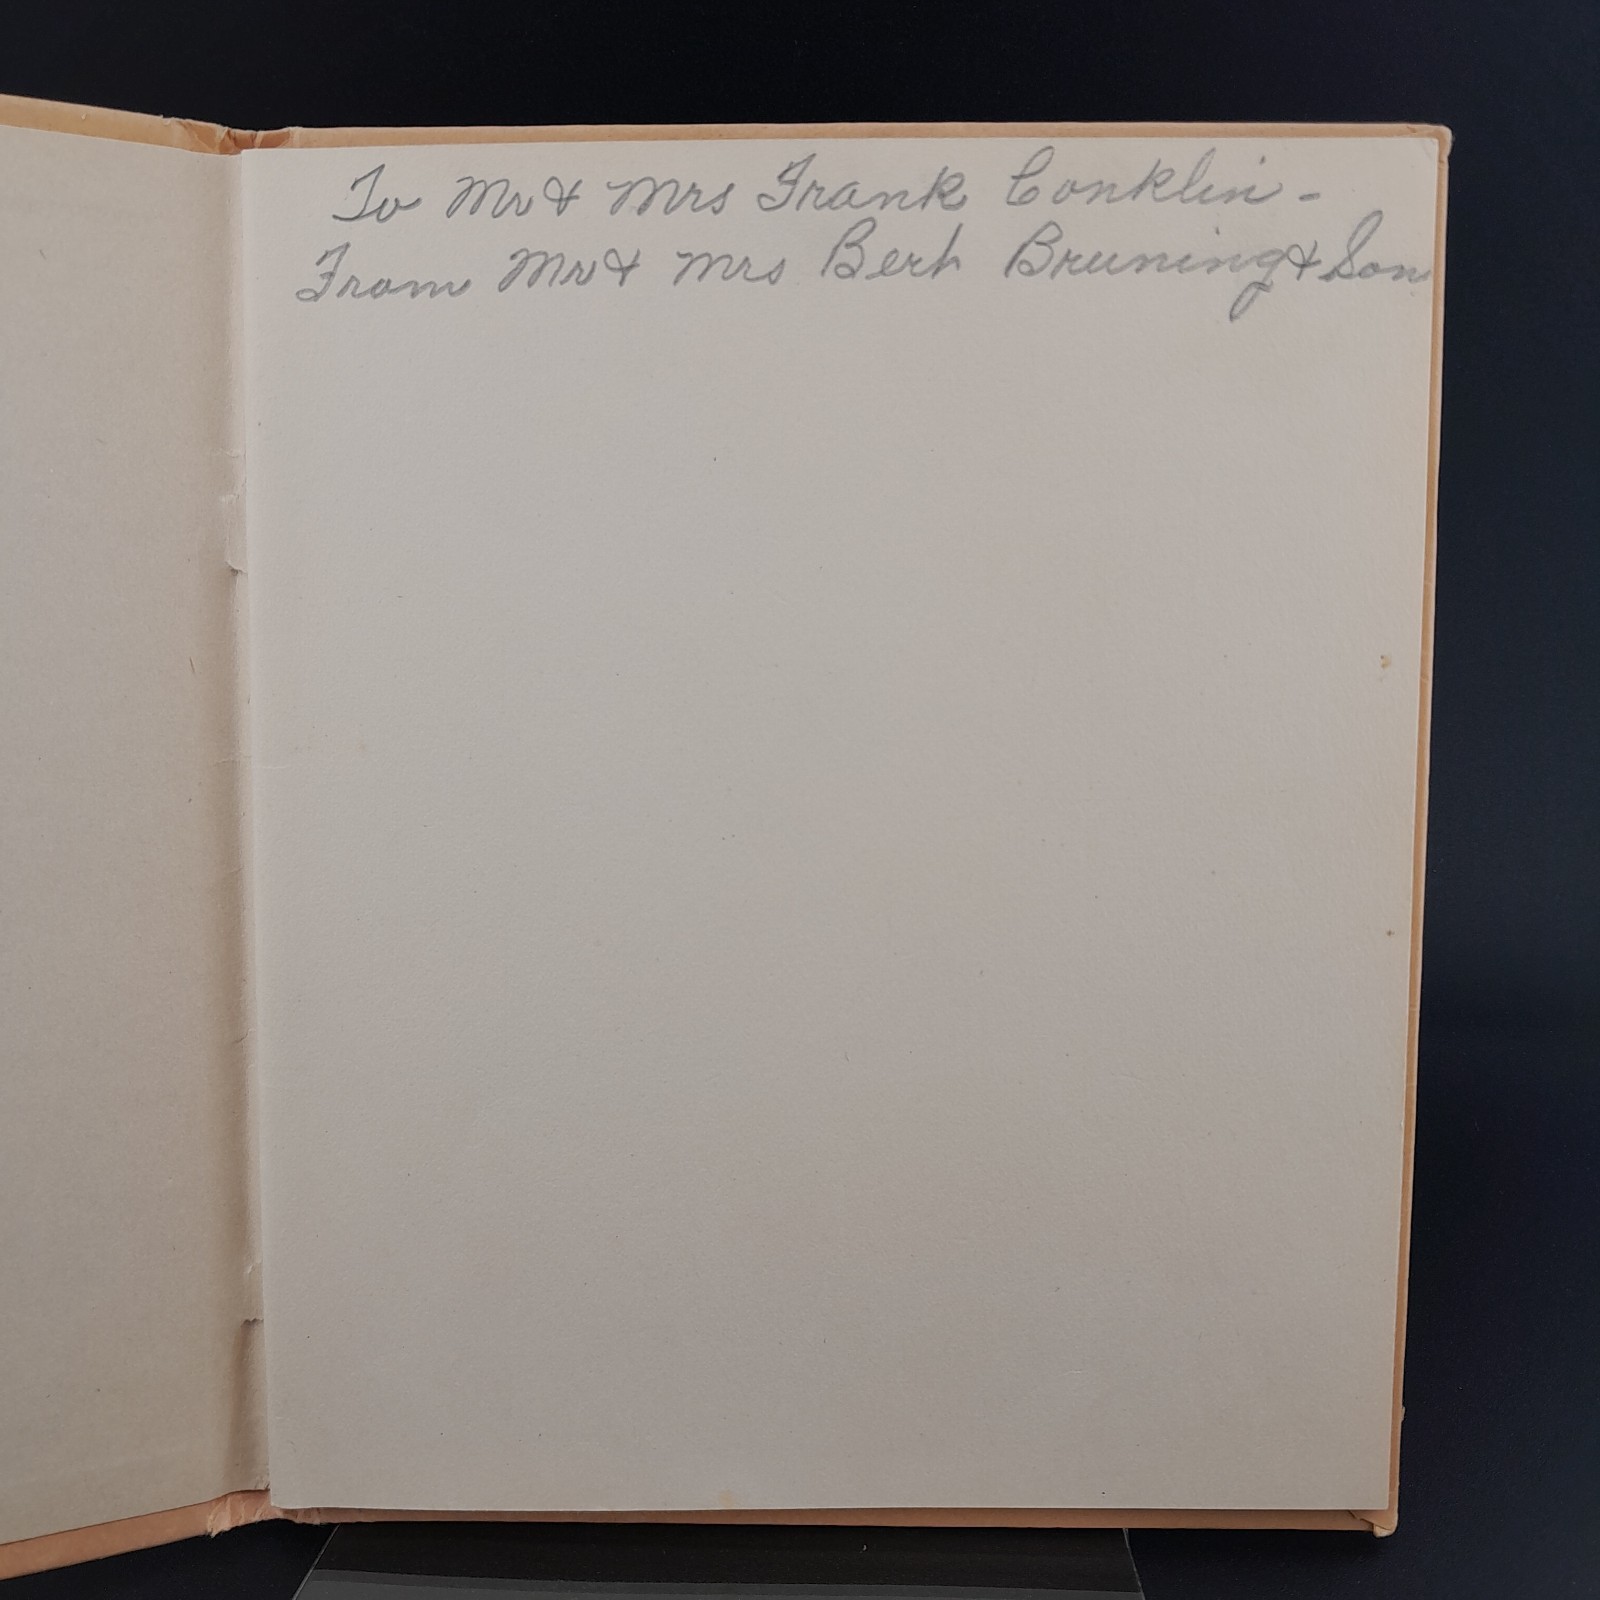 To Mr & Mrs Frank Conklin -
From Mr & Mrs Bert Bruning & Son